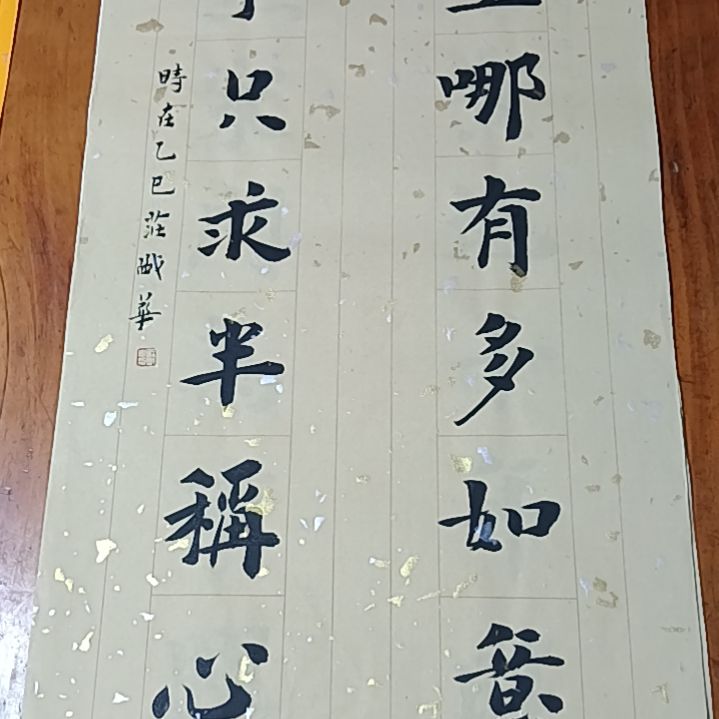 哪有多如意
只求半稱心
時在乙巳莊
華